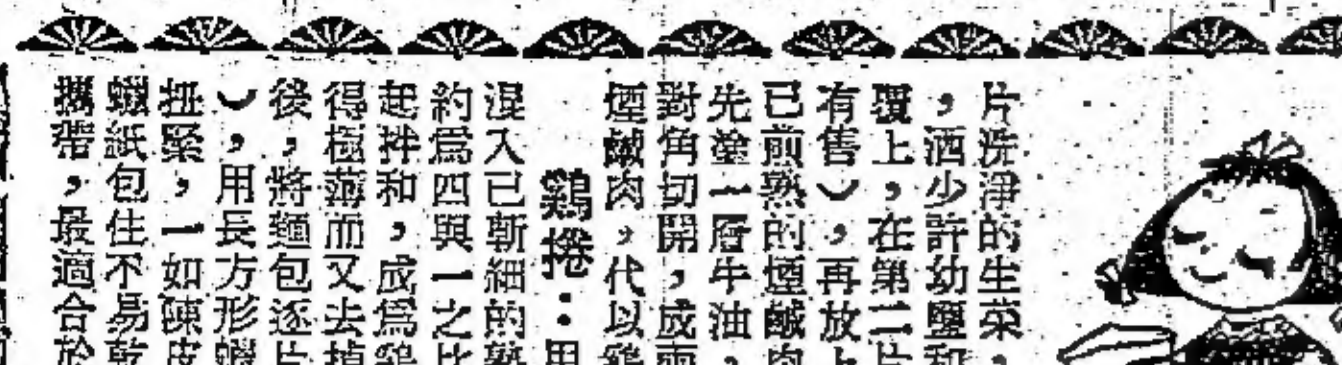 片洗淨的生菜，
，洒少許幼鹽和
覆上，在第二片
有售），再放上
已煎熟的煙鹹肉
先塗一層牛油，
對角切開，成兩
煙鹹肉，代以鷄
鷄捲：用
混入已斬細的熟
約爲四與一之比
起拌和，成爲鷄
得極薄而又去掉
後，將麵包逐片
），用長方形蠟
扭緊，一如陳皮
蠟紙包住不易乾
攜帶，最適合於